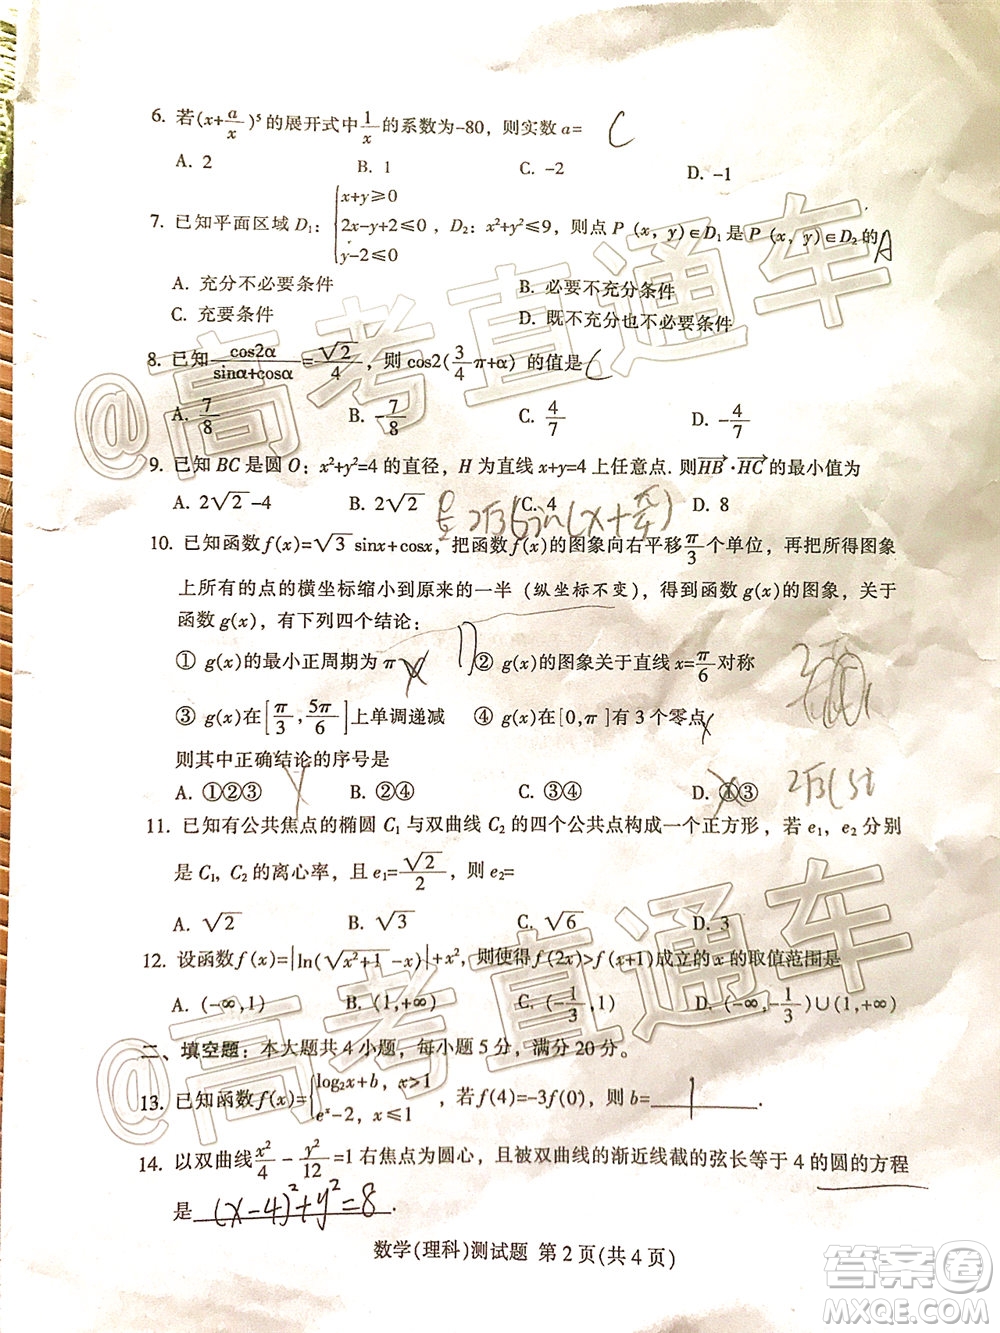 6. 若(x+a/x)⁵的展开式中1/x的系数为-80，则实数a= C
A. 2 B. 1 C. -2 D. -1
7. 已知平面区域D₁：{x+y≥0 2x-y+2≤0 y-2≤0，D₂：x²+y²≤9，则点P（x，y）∈D₁是P（x，y）∈D₂的 A
A. 充分不必要条件 B. 必要不充分条件
C. 充要条件 D. 既不充分也不必要条件
8. 已知cos2α/(sinα+cosα)=√2/4，则cos2(3/4π+α)的值是 C
A. 7/8 B. -7/8 C. 4/7 D. -4/7
9. 已知BC是圆O：x²+y²=4的直径，H为直线x+y=4上任意点.则HB·HC的最小值为
A. 2√2-4 B. 2√2 C. 4 D. 8
10. 已知函数f(x)=√3sinx+cosx，把函数f(x)的图象向右平移π/3个单位，再把所得图象
上所有的点的横坐标缩小到原来的一半（纵坐标不变），得到函数g(x)的图象，关于
函数g(x)，有下列四个结论：
① g(x)的最小正周期为π ② g(x)的图象关于直线x=π/6对称
③ g(x)在[π/3,5π/6]上单调递减 ④ g(x)在[0,π]有3个零点
则其中正确结论的序号是
A. ①②③ B. ②④ C. ①④ D. ①③
11. 已知有公共焦点的椭圆C₁与双曲线C₂的四个公共点构成一个正方形，若e₁，e₂分别
是C₁，C₂的离心率，且e₁=√2/2，则e₂=
A. √2 B. √3 C. √6 D. 3
12. 设函数f(x)=|ln(√x²+1-x)|+x²，则使得f(2x)>f(x+1)成立的x的取值范围是
A. (-∞,1) B. (1,+∞) C. (-1/3,1) D. (-∞,-1/3)∪(1,+∞)
二、填空题：本大题共4小题，每小题5分，满分20分。
13. 已知函数f(x)={log₂x+b，x>1 eˣ-2，x≤1，若f(4)=-3f(0)，则b= 1 .
14. 以双曲线x²/4-y²/12=1右焦点为圆心，且被双曲线的渐近线截的弦长等于4的圆的方程
是 (x-4)²+y²=8 .
数学(理科)测试题 第2页(共4页)
@高考直通车
@高考直通车
答案圈
MXQE.COM